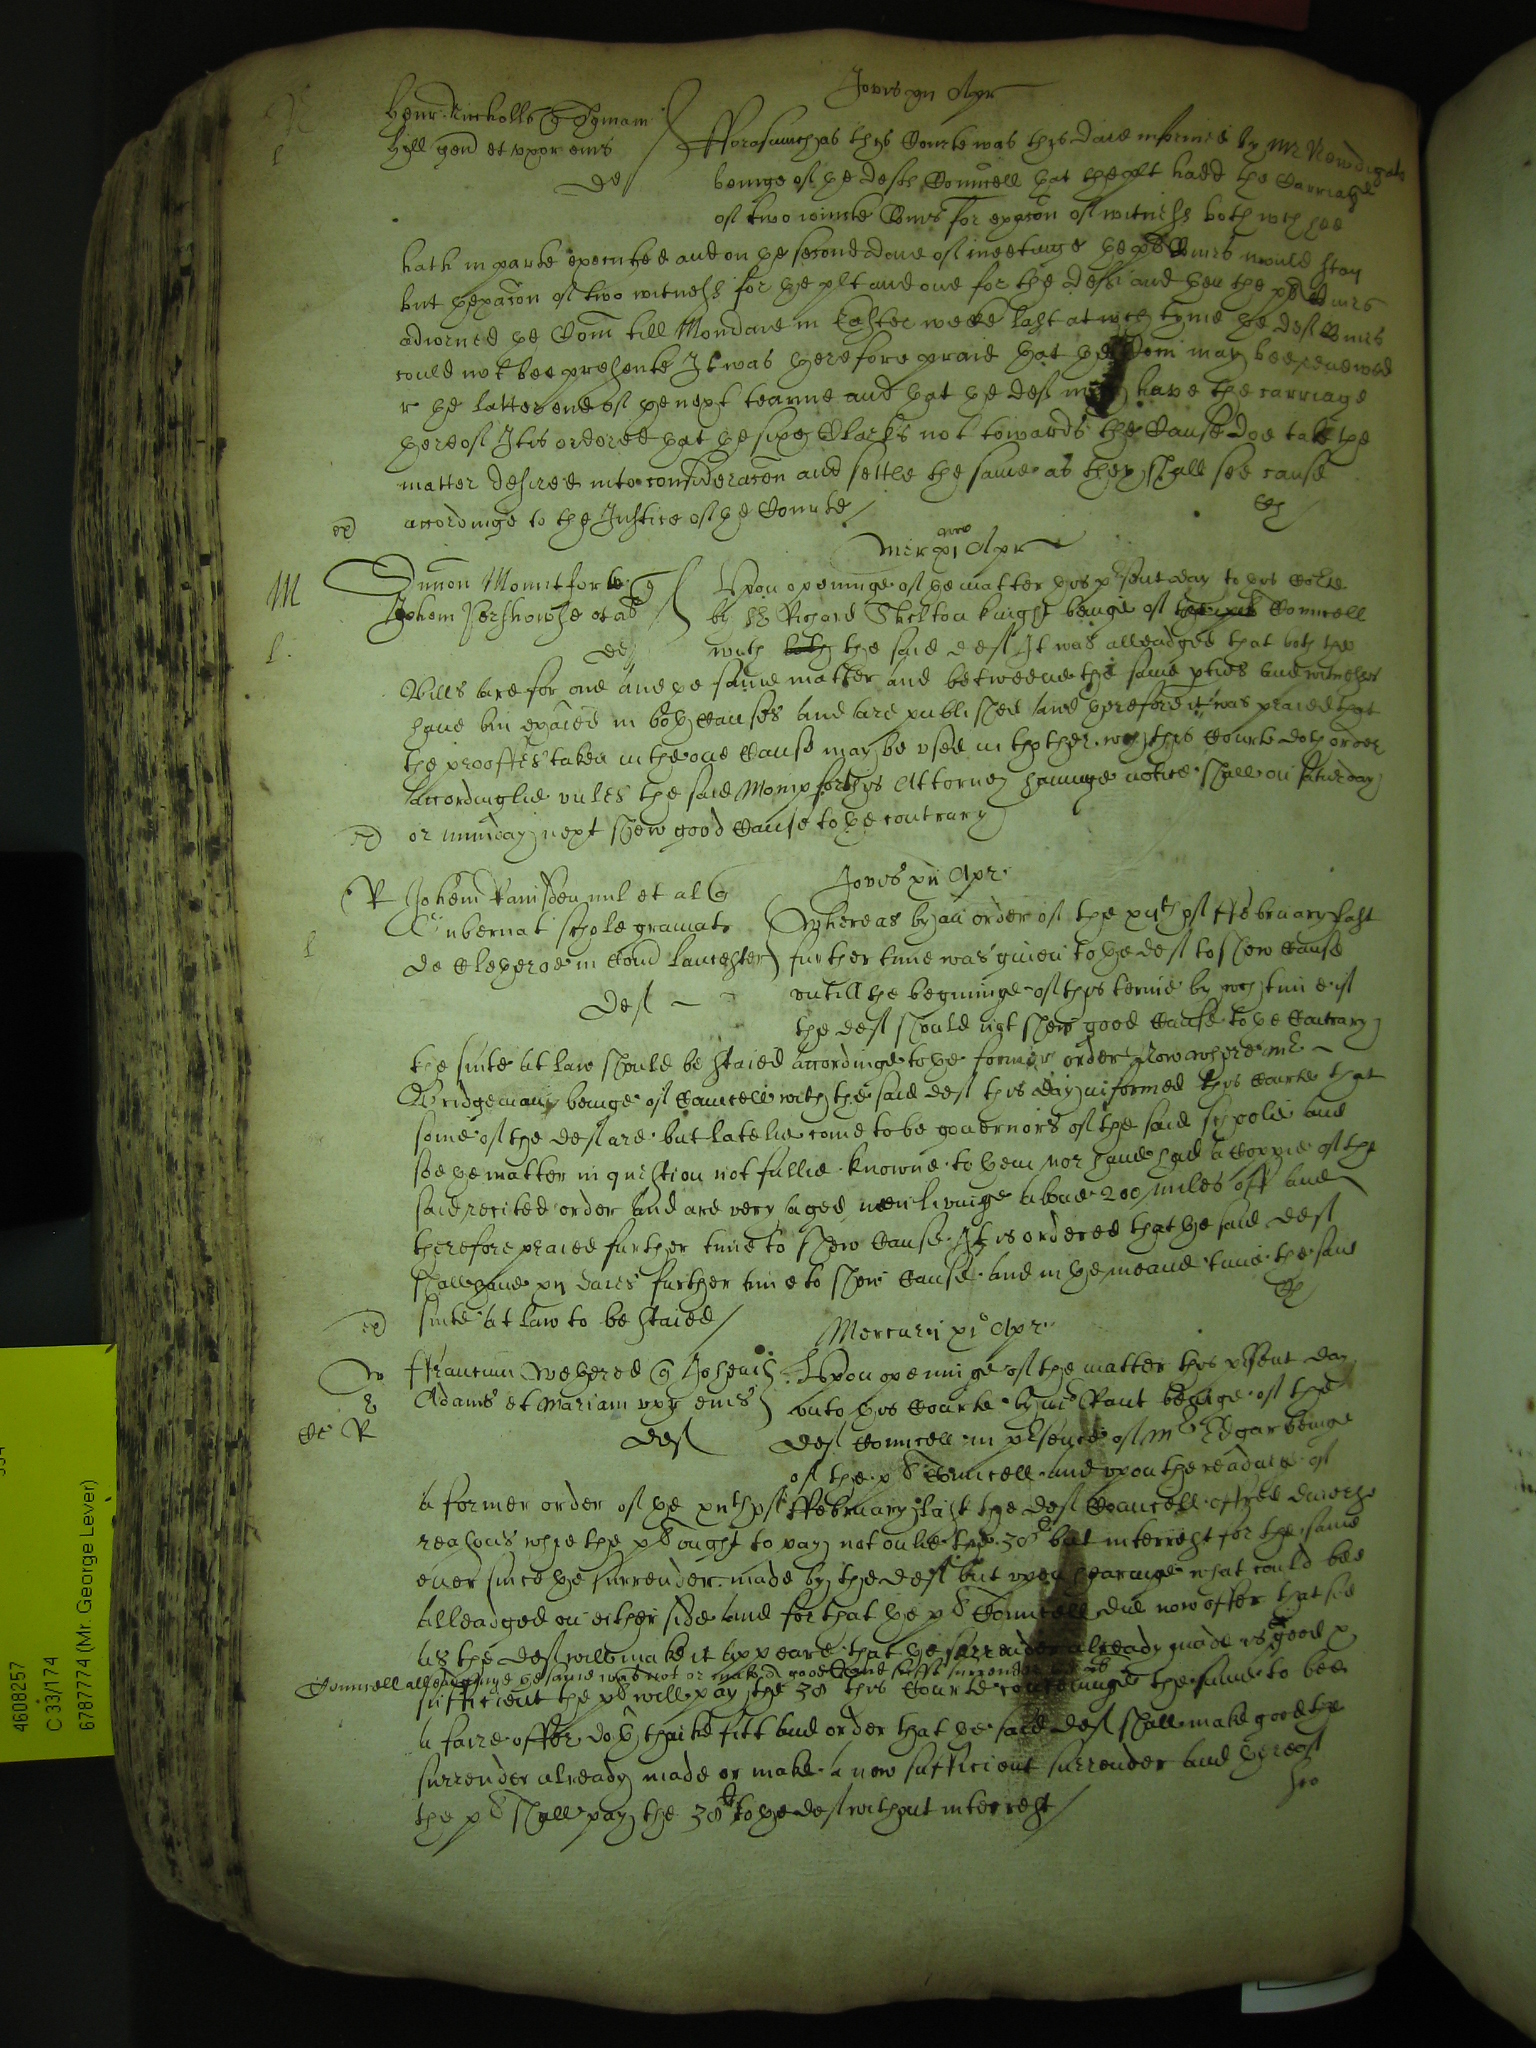 Jovis xii Apr
Henr Nicholls q Thomam
Hill gen et uxor eius
def
Fforasmuch as this Courte was this daie informed by Mr Newdigate
beinge of the defts Councell that the plt hadd the carriage
of two Comrs for exacon of witness both wch hee
hath in parte executed and on the second daie of meetinge the pls Comrs would stay
but thexacon of two witness for the plt and one for the deft and then the pls Comrs
adiorned the Com till Mondaie in Easter weeke last at wch tyme the def Comrs
could not bee presente It was therefore praid that the Com may bee renewed
the latter end of the next tearme and that the def may have the carriage
thereof It is ordered that the sixe Clarks not towards the Cause doe take the
matter desired into consideracon and settle the same as they shall see cause
accordinge to the Justice of the Courte
ex
M
l
Mercur xi Apr
Simon Mountforte q
Johem Pershowse et al
def
Upon openinge of the matter this psent day to this Courte
by Sr Richard Skelton knight beinge of Councell
with the said def It was alleadged that both the
Bills are for one and the same matter and betweene the same pties and witnesses
have bin exaied in both Causes and are published and therefore it was praied that
the prooffes taken in the one Cause may be used in thother wch this Courte doth order
accordinglie unles the said Mompforth his Attorney havinge notice shall on saturday
or munday next shew good Cause to the contrary
ex
R
l
Jovis xii Apr
Johem Ramsden mil et al q
Gubernat schole gramat
de Cletheroe in Com Lancester
def
Whereas by an order of the xiith of Ffebruary last
further time was given to the def to shew Cause
untill the beginninge of this terme by wch time if
the def should not shew good Cause to the Contrary
the suite at law should be staied accordinge to the former order Now where Mr
Bridgeman beinge of Councell with the said def this day informed this Courte that
some of the def are but latelie come to be governors of the said schole and
soe the matter in question not fullie knowne to them nor have had a Coppie of the
said recited order and are very aged men livinge above 200 miles off and
therefore praied further time to shew Cause It is ordered that the said def
shall have xii daies further time to shew Cause and in the meane time the said
suite at law to be staied
ex
Mercurii xi Apr
Ffrancum Wethered q Johem
Adams et Mariam uxor eius
def
Upon openninge of the matter this psent day
unto this Courte by Mr Kant beinge of the
def Councell in psence of Mr Edgar beinge
of the pls Councell and upon the readinge of
a former order of the xiith of Ffebruary last the def Councell offred diverse
reasons whie the pl ought to pay not onlie the 30l but interrest for the same
ever since the surrender made by the def but upon hearinge what could bee
alleadged on either side and for that the pls Councell did now offer that soe
as the def will make it appeare that the surrender already made is good
Councell alleadginge the same was not or make a good and suff surrender
sufficient the pl will pay the 30 this Courte conceivinge the same to bee
a faire offer doth thinke fitt and order that the said def shall make good the
surrender already made or make a new sufficient surrender and thereof
the pl shall pay the 30l to the def without interrest
4608257
C 33/174
6787774 (Mr. George Lever)